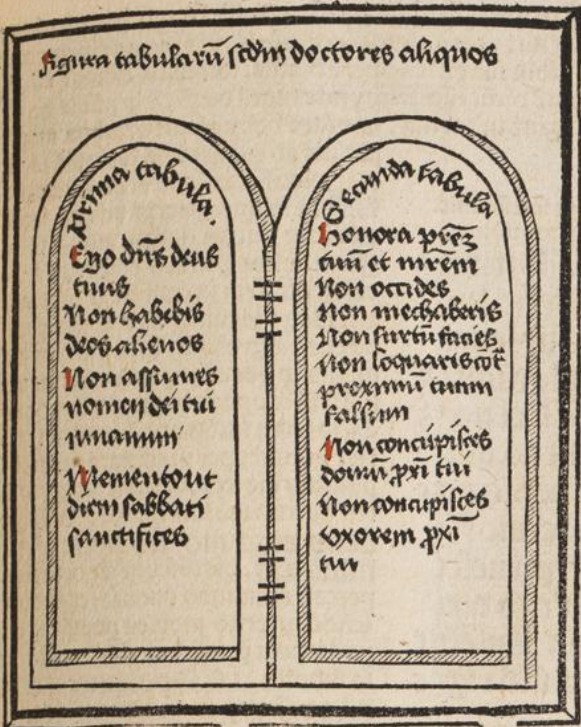 Figura tabularū scd̄m doctores aliquos
Prima tabula.
Ego dn̄s deus
tuus
Non habebis
deos alienos
Non assumes
nomen dei tui
inuanum
Memento ut
diem sabbati
sanctifices
Secunda tabula
Honora pr̄eꝫ
tuū et mr̄em
Non occides
Non mechaberis
Non furtū facies
Non loquaris
proximū tuum
falsum
Non concupisces
domū ꝓxī tui
Non concupisces
vxorem ꝓxī
tui